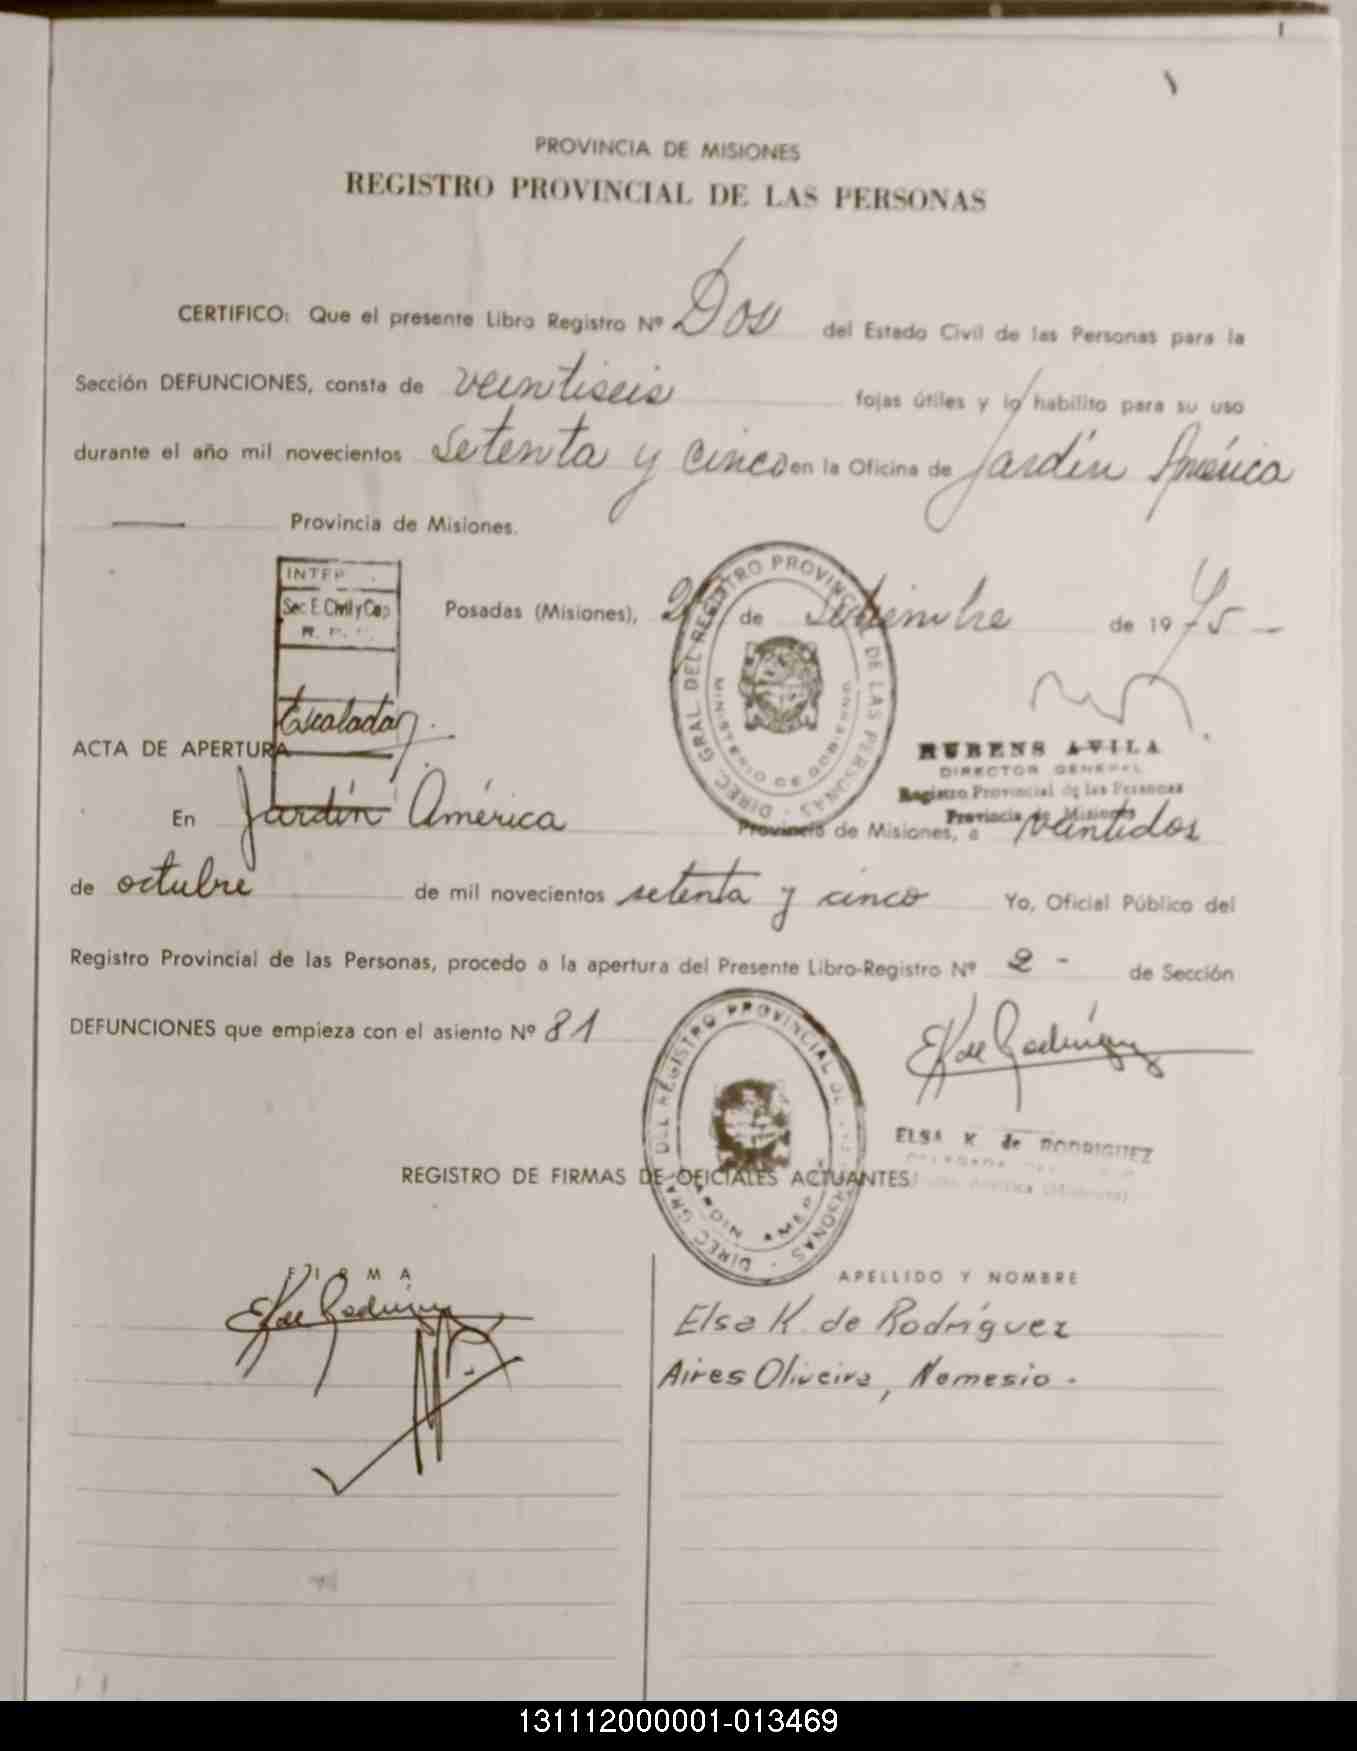 PROVINCIA DE MISIONES
REGISTRO PROVINCIAL DE LAS PERSONAS
CERTIFICO: Que el presente Libro Registro Nº Dos del Estado Civil de las Personas para la
Sección DEFUNCIONES, consta de veintiseis fojas útiles y lo habilito para su uso
durante el año mil novecientos setenta y cinco en la Oficina de Jardín América
Provincia de Misiones.
INTER
Sec. E. Civil y Cap
Posadas (Misiones), de setiembre de 1975 -
DIREC. GRAL. DEL REGISTRO PROVINCIAL DE LAS PERSONAS
MINISTERIO DE GOBIERNO
Escalada
RUBENS AVILA
DIRECTOR GENERAL
Registro Provincial de las Personas
Provincia de Misiones
ACTA DE APERTURA
En Jardín América Provincia de Misiones, a veintidos
de octubre de mil novecientos setenta y cinco Yo, Oficial Público del
Registro Provincial de las Personas, procedo a la apertura del Presente Libro-Registro Nº 2 - de Sección
DEFUNCIONES que empieza con el asiento Nº 81
E K de Rodríguez
ELSA K de RODRIGUEZ
DIREC. GRAL. DEL REGISTRO PROVINCIAL DE LAS PERSONAS
JARDIN AMERICA
REGISTRO DE FIRMAS DE OFICIALES ACTUANTES
FIRMA
APELLIDO Y NOMBRE
E K de Rodríguez
Elsa K. de Rodríguez
Aires Oliveira, Nemesio.
131112000001-013469